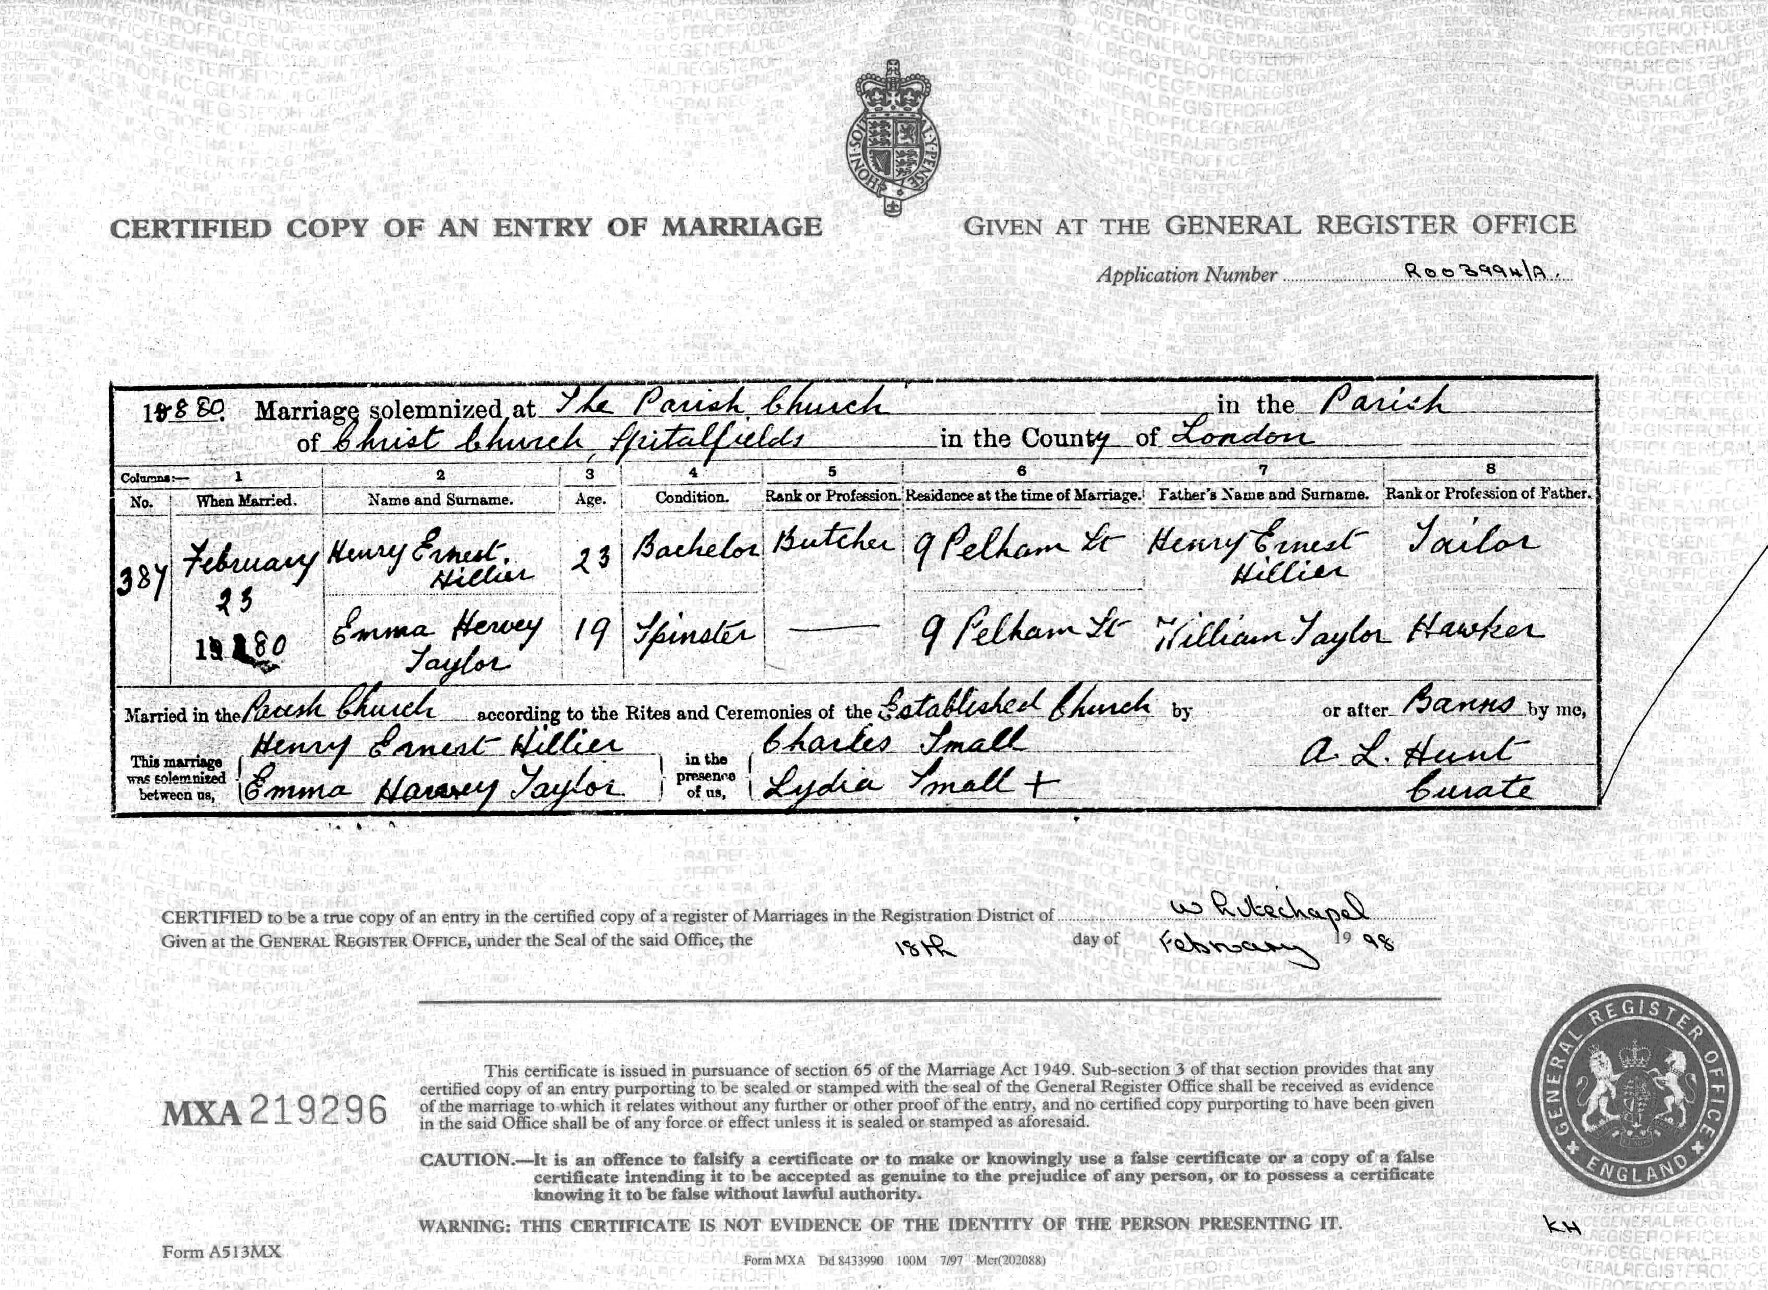 CERTIFIED COPY OF AN ENTRY OF MARRIAGE
GIVEN AT THE GENERAL REGISTER OFFICE
Application Number R003994/A.
1880. Marriage solemnized at The Parish Church in the Parish
of Christ Church, Spitalfields in the County of London
Columns:— 1 2 3 4 5 6 7 8
No. When Married. Name and Surname. Age. Condition. Rank or Profession. Residence at the time of Marriage. Father's Name and Surname. Rank or Profession of Father.
387 February 23 1880 Henry Ernest Hillier 23 Bachelor Butcher 9 Pelham St Henry Ernest Hillier Tailor
Emma Hervey Taylor 19 Spinster — 9 Pelham St William Taylor Hawker
Married in the Parish Church according to the Rites and Ceremonies of the Established Church by or after Banns by me,
This marriage was solemnized between us, Henry Ernest Hillier in the presence of us, Charles Small A. L. Hunt
Emma Harvey Taylor Lydia Small + Curate
CERTIFIED to be a true copy of an entry in the certified copy of a register of Marriages in the Registration District of Whitechapel
Given at the GENERAL REGISTER OFFICE, under the Seal of the said Office, the 18th day of February 1998
MXA 219296
This certificate is issued in pursuance of section 65 of the Marriage Act 1949. Sub-section 3 of that section provides that any
certified copy of an entry purporting to be sealed or stamped with the seal of the General Register Office shall be received as evidence
of the marriage to which it relates without any further or other proof of the entry, and no certified copy purporting to have been given
in the said Office shall be of any force or effect unless it is sealed or stamped as aforesaid.
CAUTION.—It is an offence to falsify a certificate or to make or knowingly use a false certificate or a copy of a false
certificate intending it to be accepted as genuine to the prejudice of any person, or to possess a certificate
knowing it to be false without lawful authority.
WARNING: THIS CERTIFICATE IS NOT EVIDENCE OF THE IDENTITY OF THE PERSON PRESENTING IT.
GENERAL REGISTER OFFICE
ENGLAND
KH
Form A513MX
Form MXA Dd 8433990 100M 7/97 Mcr(202088)